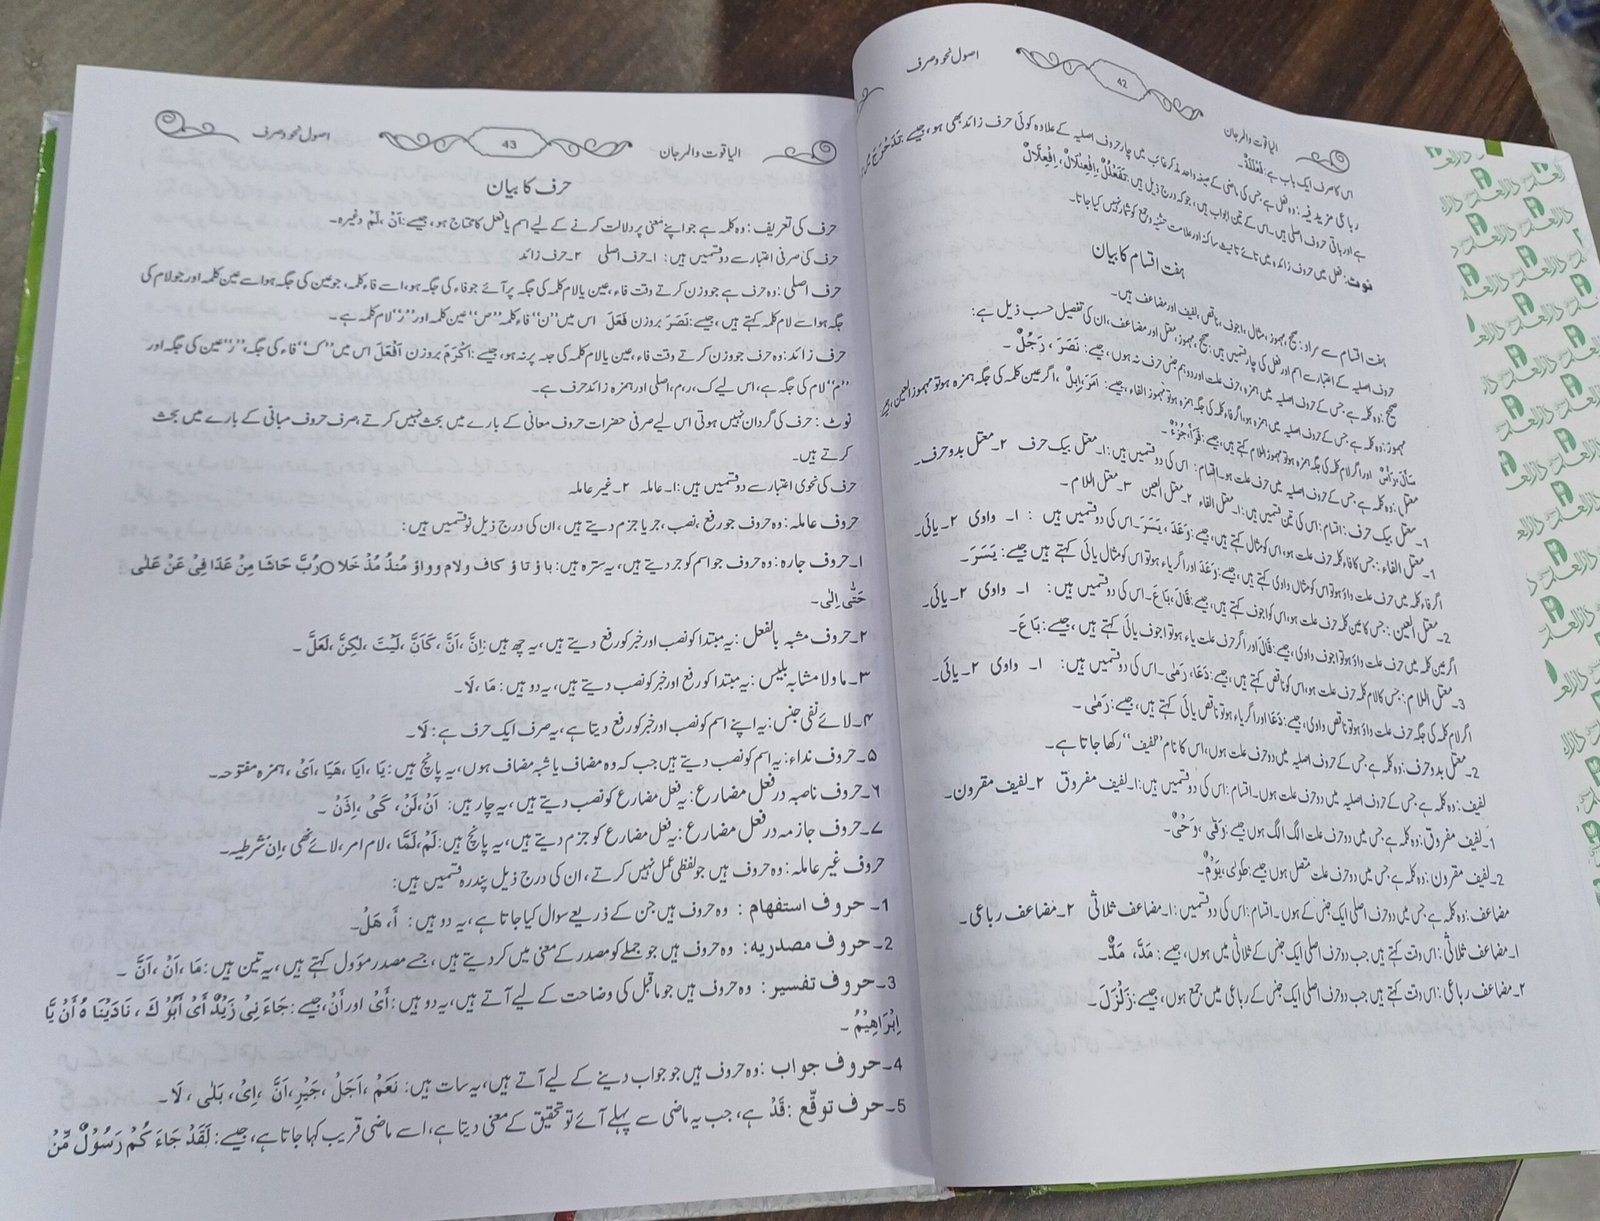 الیاقوت والمرجان 42 اصول نحو و صرف
اس کا صرف ایک باب ہے: فَعْلَلَةٌ۔
رباعی مزید فیہ: وہ فعل ہے جس کی ماضی کے صیغہ واحد مذکر غائب میں چار حروف اصلیہ کے علاوہ کوئی حرف زائد بھی ہو، جیسے: تَدَحْرَجَ
ہے اور باقی حروف اصلی ہیں۔ اس کے تین ابواب ہیں، جو کہ درج ذیل ہیں: تَفَعْلُلٌ، اِفْعِنْلَالٌ، اِفْعِلَّالٌ
نوٹ: فعل میں حروف زائدہ میں تائے تانیث ساکنہ اور علامت تثنیہ وجمع کو شمار نہیں کیا جاتا۔
ہفت اقسام کا بیان
ہفت اقسام سے مراد: صحیح، مہموز، مثال، اجوف، ناقص، لفیف اور مضاعف ہیں۔
حروف اصلیہ کے اعتبار سے اسم اور فعل کی چار قسمیں ہیں: صحیح، مہموز، معتل اور مضاعف، ان کی تفصیل حسب ذیل ہے:
صحیح: وہ کلمہ ہے جس کے حروف اصلیہ میں ہمزہ، حرف علت اور دو ہم جنس حرف نہ ہوں، جیسے: نَصَرَ، رَجُلٌ۔
مہموز: وہ کلمہ ہے جس کے حروف اصلیہ میں ہمزہ ہو، اگر فاء کلمہ کی جگہ ہمزہ ہو تو مہموز الفاء، جیسے: اَمَرَ، اِبِلٌ، اگر عین کلمہ کی جگہ ہمزہ ہو تو مہموز العین، جیسے
سَأَلَ، رَأْسٌ اور اگر لام کلمہ کی جگہ ہمزہ ہو تو مہموز اللام کہتے ہیں، جیسے: قَرَأَ، جُزْءٌ۔
معتل: وہ کلمہ ہے جس کے حروف اصلیہ میں حرف علت ہو۔ اقسام: اس کی دو قسمیں ہیں: ۱۔ معتل بیک حرف ۲۔ معتل بدو حرف۔
1۔ معتل بیک حرف: اقسام: اس کی تین قسمیں ہیں: ۱۔ معتل الفاء ۲۔ معتل العین ۳۔ معتل اللام۔
1۔ معتل الفاء: جس کا فاء کلمہ حرف علت ہو، اس کو مثال کہتے ہیں، جیسے: وَعَدَ، یَسَرَ۔ اس کی دو قسمیں ہیں: ۱۔ واوی ۲۔ یائی۔
اگر فاء کلمہ میں حرف علت واؤ ہو تو اس کو مثال واوی کہتے ہیں، جیسے: وَعَدَ اور اگر یاء ہو تو اس کو مثال یائی کہتے ہیں جیسے: یَسَرَ۔
2۔ معتل العین: جس کا عین کلمہ حرف علت ہو، اس کو اجوف کہتے ہیں، جیسے: قَالَ، بَاعَ۔ اس کی دو قسمیں ہیں: ۱۔ واوی ۲۔ یائی۔
اگر عین کلمہ میں حرف علت واؤ ہو تو اجوف واوی، جیسے: قَالَ اور اگر حرف علت یاء ہو تو اجوف یائی کہتے ہیں، جیسے: بَاعَ۔
3۔ معتل اللام: جس کا لام کلمہ حرف علت ہو، اس کو ناقص کہتے ہیں، جیسے: دَعَا، رَمٰی۔ اس کی دو قسمیں ہیں: ۱۔ واوی ۲۔ یائی۔
اگر لام کلمہ کی جگہ حرف علت واؤ ہو تو ناقص واوی، جیسے: دَعَا اور اگر یاء ہو تو ناقص یائی کہتے ہیں، جیسے: رَمٰی۔
2۔ معتل بدو حرف: وہ کلمہ ہے جس کے حروف اصلیہ میں دو حرف علت ہوں، اس کا نام ’’لفیف‘‘ رکھا جاتا ہے۔
لفیف: وہ کلمہ ہے جس کے حروف اصلیہ میں دو حرف علت ہوں۔ اقسام: اس کی دو قسمیں ہیں: ۱۔ لفیف مفروق ۲۔ لفیف مقرون۔
1۔ لفیف مفروق: وہ کلمہ ہے جس میں دو حرف علت الگ الگ ہوں جیسے: وَقٰی، وَحْیٌ۔
2۔ لفیف مقرون: وہ کلمہ ہے جس میں دو حرف علت متصل ہوں جیسے: طَوٰی، یَوْمٌ۔
مضاعف: وہ کلمہ ہے جس میں دو حرف اصلی ایک جنس کے ہوں۔ اقسام: اس کی دو قسمیں: ۱۔ مضاعف ثلاثی ۲۔ مضاعف رباعی۔
۱۔ مضاعف ثلاثی: اس وقت کہتے ہیں جب دو حرف اصلی ایک جنس کے ثلاثی میں ہوں، جیسے: مَدَّ، مَدٌّ۔
۲۔ مضاعف رباعی: اس وقت کہتے ہیں جب دو حرف اصلی ایک جنس کے رباعی میں جمع ہوں، جیسے: زَلْزَلَ۔
الیاقوت والمرجان 43 اصول نحو و صرف
حرف کا بیان
حرف کی تعریف: وہ کلمہ ہے جو اپنے معنی پر دلالت کرنے کے لیے اسم یا فعل کا محتاج ہو، جیسے: اَنْ، لَمْ وغیرہ۔
حرف کی صرفی اعتبار سے دو قسمیں ہیں: ۱۔ حرف اصلی ۲۔ حرف زائد
حرف اصلی: وہ حرف ہے جو وزن کرتے وقت فاء، عین یا لام کلمہ کی جگہ پر آئے جو فاء کی جگہ ہو، اسے فاء کلمہ، جو عین کی جگہ ہو اسے عین کلمہ اور جو لام کی
جگہ ہو اسے لام کلمہ کہتے ہیں، جیسے: نَصَرَ بروزن فَعَلَ اس میں ’’ن‘‘ فاء کلمہ ’’ص‘‘ عین کلمہ اور ’’ر‘‘ لام کلمہ ہے۔
حرف زائد: وہ حرف جو وزن کرتے وقت فاء، عین یا لام کلمہ کی جہ پر نہ ہو، جیسے: اَکْرَمَ بروزن اَفْعَلَ اس میں ’’ک‘‘ فاء کی جگہ، ’’ر‘‘ عین کی جگہ اور
’’م‘‘ لام کی جگہ ہے، اس لیے ک، ر، م، اصلی اور ہمزہ زائد حرف ہے۔
نوٹ: حرف کی گردان نہیں ہوتی اس لیے صرفی حضرات حروف معانی کے بارے میں بحث نہیں کرتے، صرف حروف مبانی کے بارے میں بحث
کرتے ہیں۔
حرف کی نحوی اعتبار سے دو قسمیں ہیں: ۱۔ عاملہ ۲۔ غیر عاملہ
حروف عاملہ: وہ حروف جو رفع، نصب، جر یا جزم دیتے ہیں، ان کی درج ذیل نو قسمیں ہیں:
۱۔ حروف جارہ: وہ حروف جو اسم کو جر دیتے ہیں، یہ سترہ ہیں: باؤ تاؤ کاف و لام و واؤ مُنذُ مُذ خَلا ○ رُبَّ حَاشَا مِنْ عَدَا فِیْ عَنْ عَلٰی
حَتّٰی اِلٰی۔
۲۔ حروف مشبہ بالفعل: یہ مبتدا کو نصب اور خبر کو رفع دیتے ہیں، یہ چھ ہیں: اِنَّ، اَنَّ، کَاَنَّ، لَیْتَ، لٰکِنَّ، لَعَلَّ۔
۳۔ ما ولا مشابہ بلیس: یہ مبتدا کو رفع اور خبر کو نصب دیتے ہیں، یہ دو ہیں: مَا، لَا۔
۴۔ لائے نفی جنس: یہ اپنے اسم کو نصب اور خبر کو رفع دیتا ہے، یہ صرف ایک حرف ہے: لَا۔
۵۔ حروف نداء: یہ اسم کو نصب دیتے ہیں جب کہ وہ مضاف یا شبہ مضاف ہوں، یہ پانچ ہیں: یَا، اَیَا، هَیَا، اَیْ، ہمزہ مفتوحہ۔
۶۔ حروف ناصبہ در فعل مضارع: یہ فعل مضارع کو نصب دیتے ہیں، یہ چار ہیں: اَنْ، لَنْ، کَیْ، اِذَنْ۔
۷۔ حروف جازمہ در فعل مضارع: یہ فعل مضارع کو جزم دیتے ہیں، یہ پانچ ہیں: لَمْ، لَمَّا، لام امر، لائے نھی، اِن شرطیہ۔
حروف غیر عاملہ: وہ حروف ہیں جو لفظی عمل نہیں کرتے، ان کی درج ذیل پندرہ قسمیں ہیں:
1۔ حروف استفهام: وہ حروف ہیں جن کے ذریعے سوال کیا جاتا ہے، یہ دو ہیں: أَ، هَلْ۔
2۔ حروف مصدریه: وہ حروف ہیں جو جملے کو مصدر کے معنی میں کر دیتے ہیں، جسے مصدر مؤول کہتے ہیں، یہ تین ہیں: مَا، اَنْ، اَنَّ۔
3۔ حروف تفسیر: وہ حروف ہیں جو ماقبل کی وضاحت کے لیے آتے ہیں، یہ دو ہیں: أَیْ اور أَنْ، جیسے: جَاءَنِیْ زَیْدٌ أَیْ أَبُوْكَ، نَادَیْنَاهُ أَنْ یَّا
اِبْرَاهِیْمُ۔
4۔ حروف جواب: وہ حروف ہیں جو جواب دینے کے لیے آتے ہیں، یہ سات ہیں: نَعَمْ، اَجَلْ، جَیْرِ، اَنَّ، اِیْ، بَلٰی، لَا۔
5۔ حرف توقّع: قَدْ ہے، جب یہ ماضی سے پہلے آئے تو تحقیق کے معنی دیتا ہے، اسے ماضی قریب کہا جاتا ہے، جیسے: لَقَدْ جَاءَ کُمْ رَسُوْلٌ مِّنْ